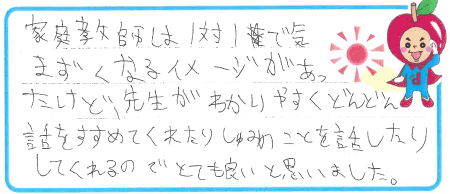 家庭教師は1対1で気
まずくなるイメージがあっ
たけど、先生がわかりやすくどんどん
話をすすめてくれたりしゅみのことを話したり
してくれるのでとても良いと思いました。